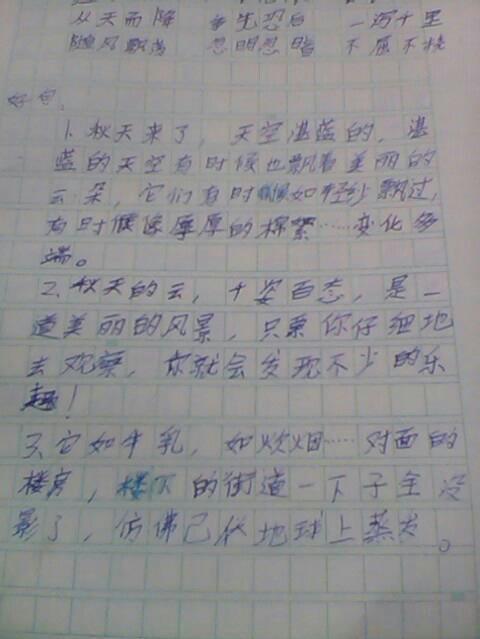 从天而降 争先恐后 一泻千里
随风飘荡 忽明忽暗 不屈不挠
好句:
1、秋天来了，天空湛蓝的，湛
蓝的天空有时候也飘着美丽的
云朵，它们有时候如轻纱飘过，
有时候像厚厚的棉絮……变化多
端。
2、秋天的云，千姿百态，是一
道美丽的风景，只要你仔细地
去观察，你就会发现不少的乐
趣！
3、它如牛乳，如炊烟……对面的
楼房，楼下的街道一下子全没
影了，仿佛已从地球上蒸发。